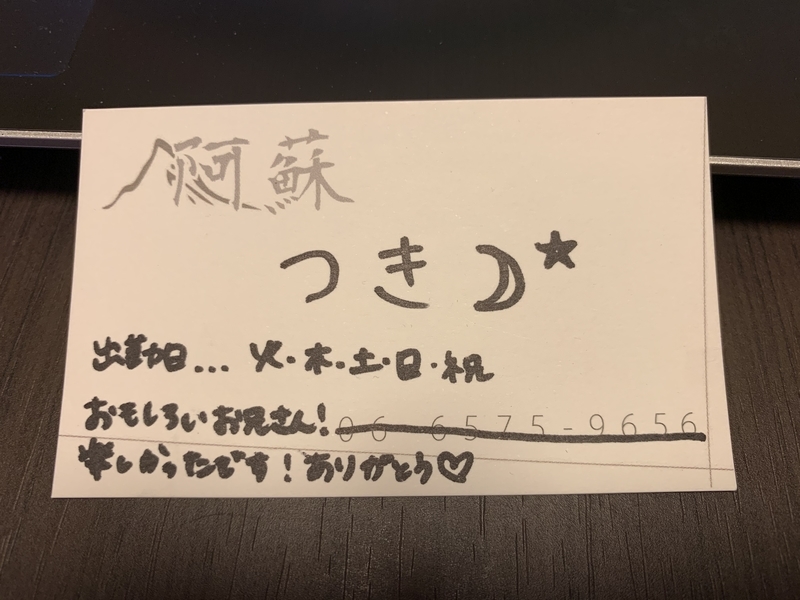 阿蘇
つき
出勤日... 火・木・土・日・祝
おもしろいお兄さん! 06-6575-9656
楽しかったです!ありがとう♡